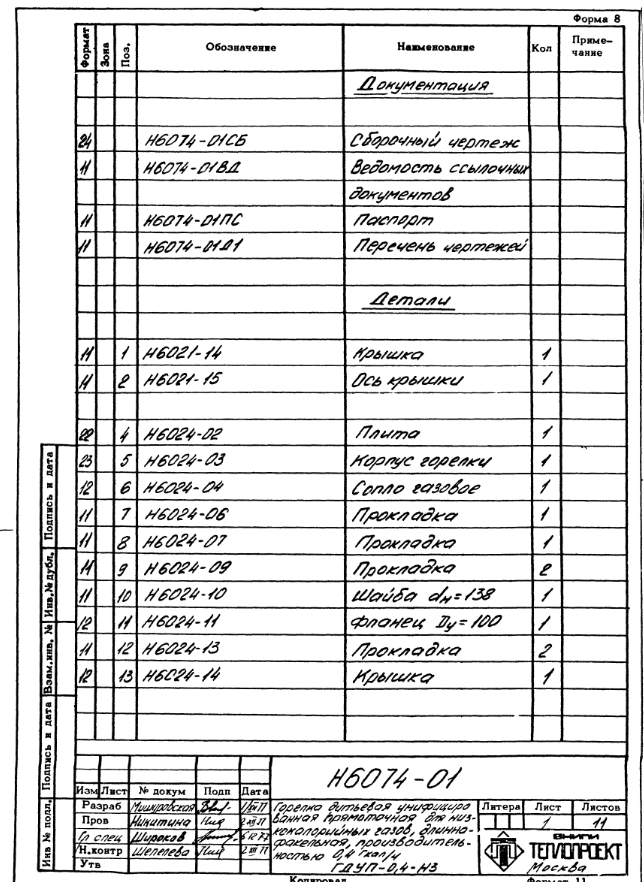 Форма 8
Формат Зона Поз. Обозначение Наименование Кол Приме-
чание
Документация
24 Н6074-01СБ Сборочный чертеж
11 Н6074-01ВД Ведомость ссылочных
документов
11 Н6074-01ПС Паспорт
11 Н6074-01Д1 Перечень чертежей
Детали
11 1 Н6021-14 Крышка 1
11 2 Н6021-15 Ось крышки 1
22 4 Н6024-02 Плита 1
23 5 Н6024-03 Корпус горелки 1
12 6 Н6024-04 Сопло газовое 1
11 7 Н6024-06 Прокладка 1
11 8 Н6024-07 Прокладка 1
11 9 Н6024-09 Прокладка 2
11 10 Н6024-10 Шайба dн=138 1
12 11 Н6024-11 Фланец Ду=100 1
11 12 Н6024-13 Прокладка 2
12 13 Н6С24-14 Крышка 1
Подпись и дата
Инв.№ дубл.
Взам.инв. №
Подпись и дата
Инв № подл.
Н6074-01
Изм Лист № докум Подп Дата
Разраб Мишуровская
Пров Никитина
Гл спец Широков
Н.контр Шепелева
Утв
Горелка дутьевая унифициро
ванная прямоточная для низ-
кокалорийных газов, длинно-
факельная, производитель-
ностью 0,4 Гкал/ч
ГДУП-0,4-Н3
Литера Лист Листов
1 11
ВНИПИ
ТЕПЛОПРОЕКТ
Москва
Копировал Формат 11